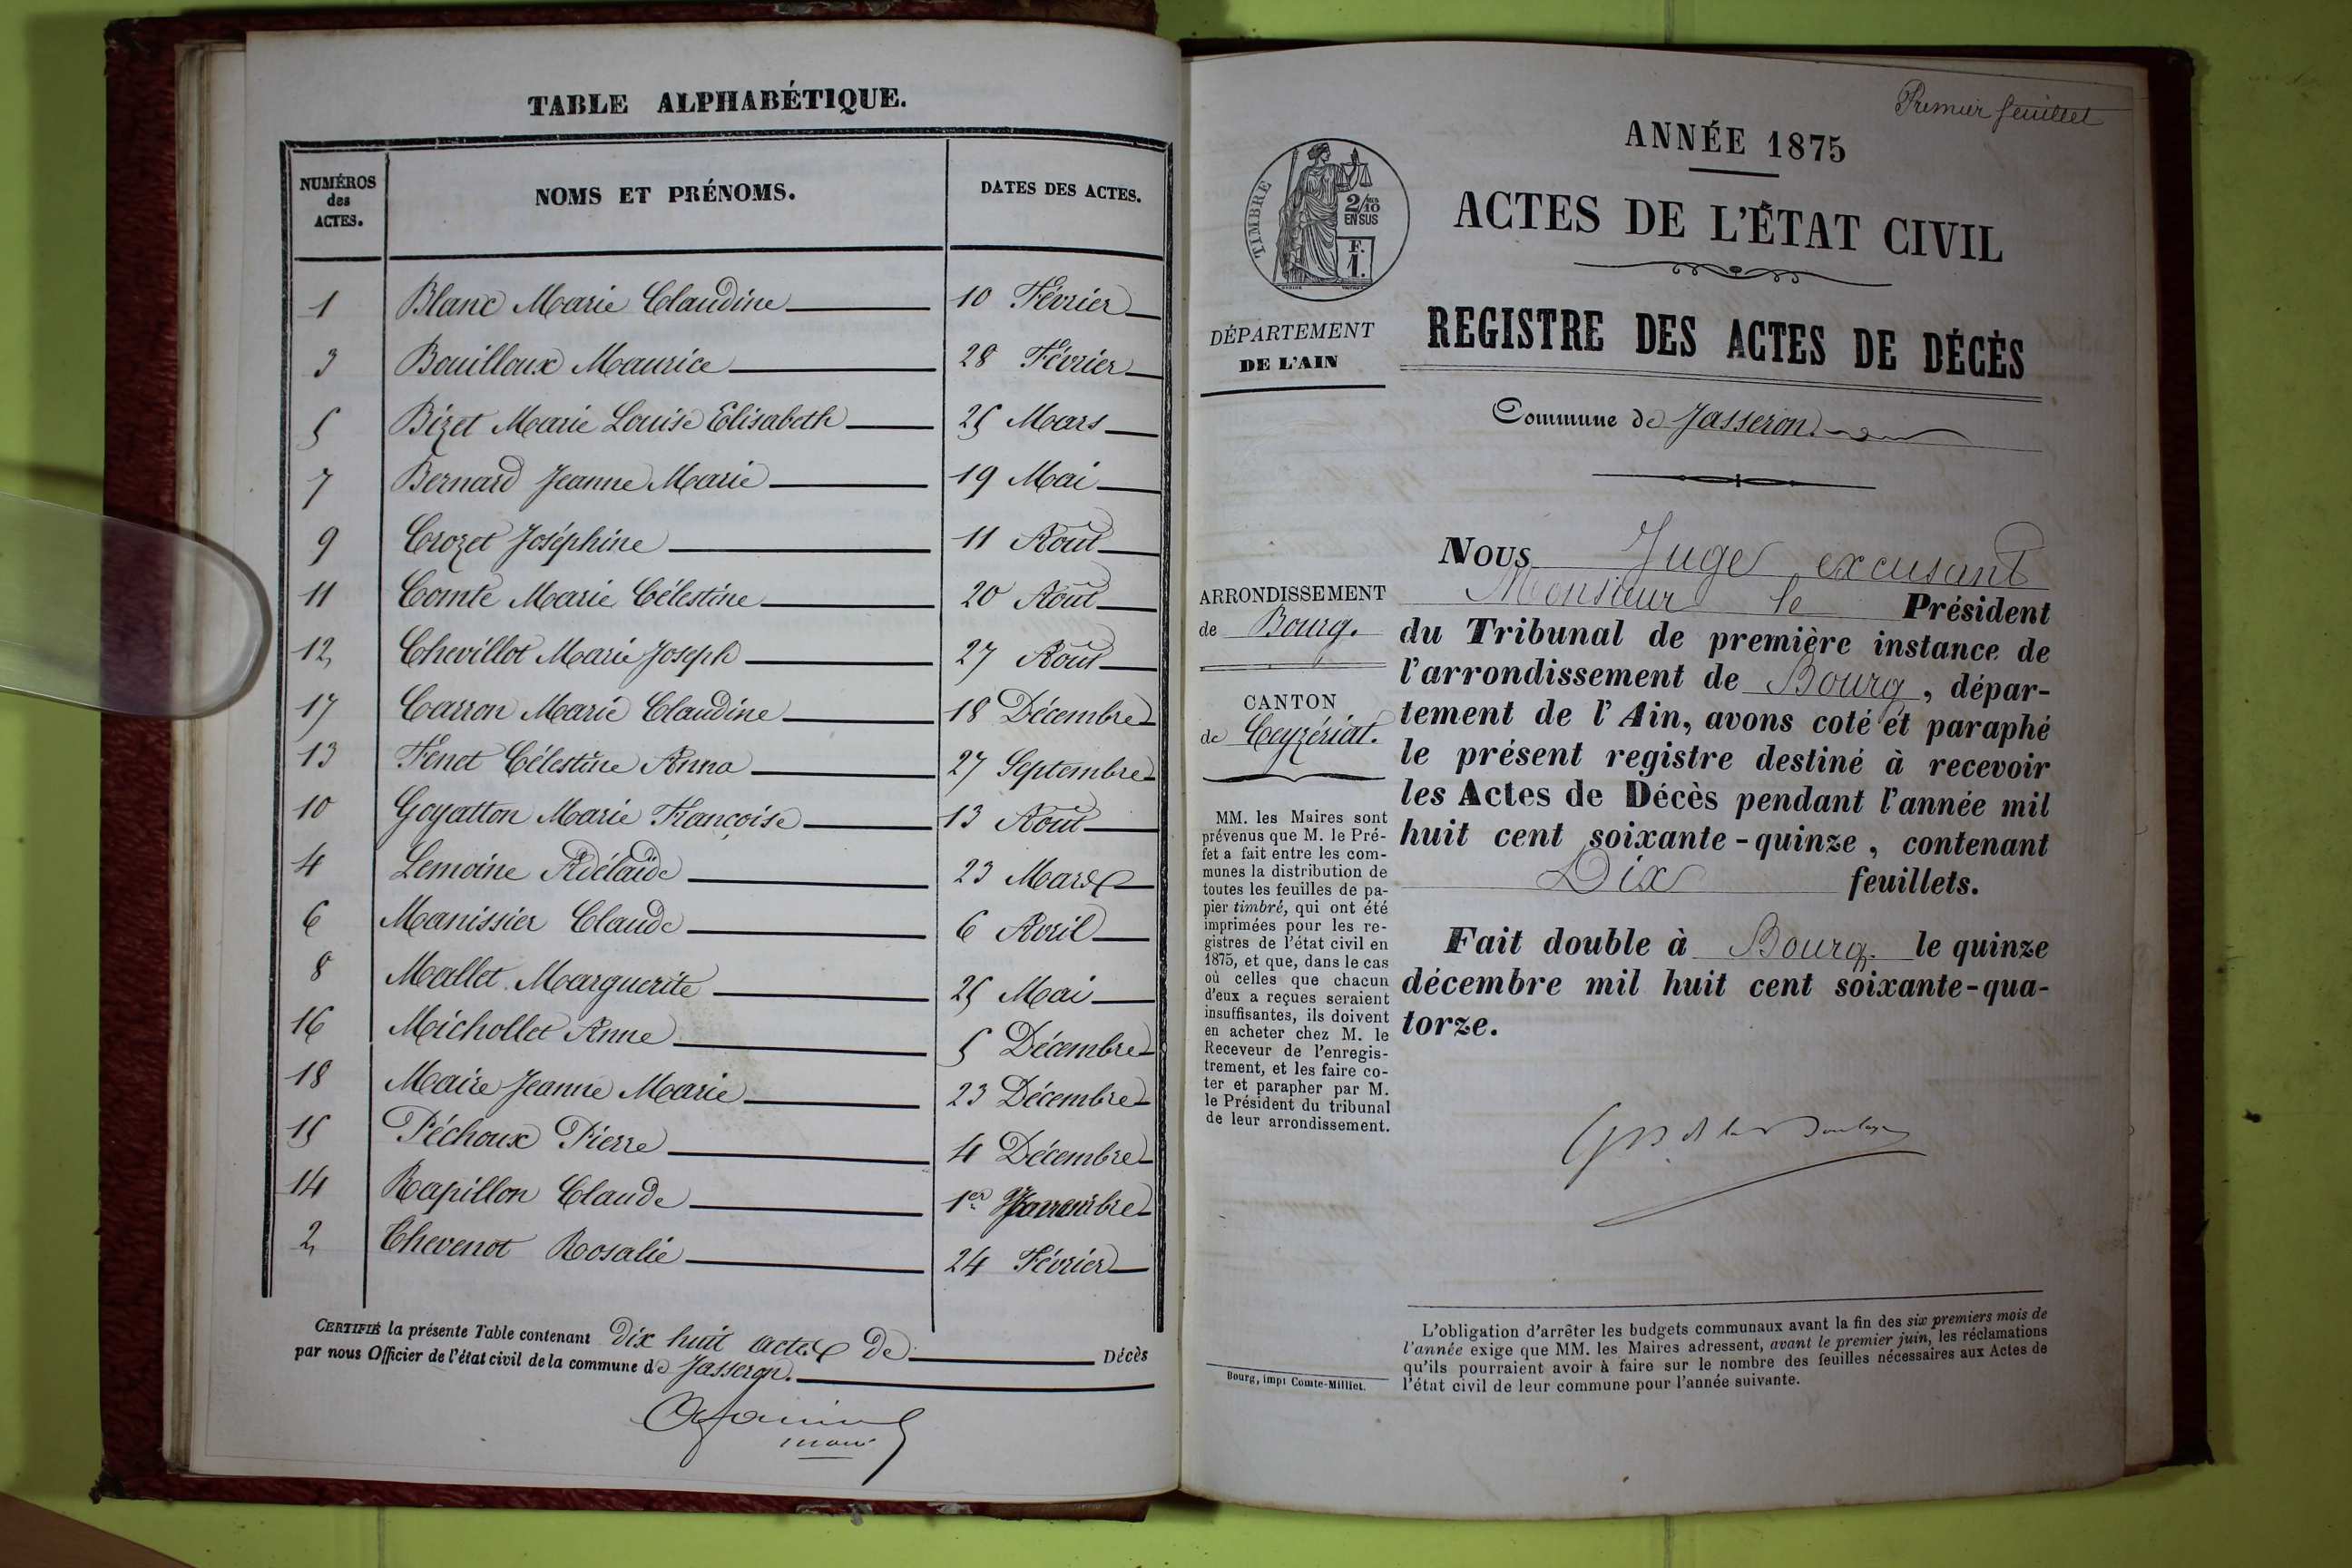 TABLE ALPHABÉTIQUE.
NUMÉROS des ACTES. NOMS ET PRÉNOMS. DATES DES ACTES.
1 Blanc Marie Claudine 10 Février
3 Bouilloux Maurice 28 Février
5 Bizet Marie Louise Elisabeth 25 Mars
7 Bernard Jeanne Marie 19 Mai
9 Crozet Joséphine 11 Août
11 Comte Marie Célestine 20 Août
12 Chevillot Marie Joseph 27 Août
17 Carron Marie Claudine 18 Décembre
13 Fenet Célestine Anna 27 Septembre
10 Goyatton Marie Françoise 13 Août
4 Lemoine Adélaïde 23 Mars
6 Manissier Claude 6 Avril
8 Mallet Marguerite 25 Mai
16 Michollet Anne 5 Décembre
18 Maire Jeanne Marie 23 Décembre
15 Péchoux Pierre 4 Décembre
14 Rapillon Claude 1er
2 Chevenot Rosalie 24 Février
CERTIFIÉ la présente Table contenant dix huit actes de Décès
par nous Officier de l'état civil de la commune de Jasseron.
Premier feuillet
ANNÉE 1875
TIMBRE
2/10
EN SUS
F.
1.
ACTES DE L'ÉTAT CIVIL
DÉPARTEMENT
DE L'AIN
REGISTRE DES ACTES DE DÉCÈS
Commune de Jasseron.
ARRONDISSEMENT
de Bourg.
CANTON
de Ceyzériat.
MM. les Maires sont
prévenus que M. le Pré-
fet a fait entre les com-
munes la distribution de
toutes les feuilles de pa-
pier timbré, qui ont été
imprimées pour les re-
gistres de l'état civil en
1875, et que, dans le cas
où celles que chacun
d'eux a reçues seraient
insuffisantes, ils doivent
en acheter chez M. le
Receveur de l'enregis-
trement, et les faire co-
ter et parapher par M.
le Président du tribunal
de leur arrondissement.
Nous Juge excusant
Monsieur le Président
du Tribunal de première instance de
l'arrondissement de Bourg, dépar-
tement de l'Ain, avons coté et paraphé
le présent registre destiné à recevoir
les Actes de Décès pendant l'année mil
huit cent soixante-quinze, contenant
Dix feuillets.
Fait double à Bourg. le quinze
décembre mil huit cent soixante-qua-
torze.
L'obligation d'arrêter les budgets communaux avant la fin des six premiers mois de
l'année exige que MM. les Maires adressent, avant le premier juin, les réclamations
qu'ils pourraient avoir à faire sur le nombre des feuilles nécessaires aux Actes de
l'état civil de leur commune pour l'année suivante.
Bourg, impr Comte-Milliet.